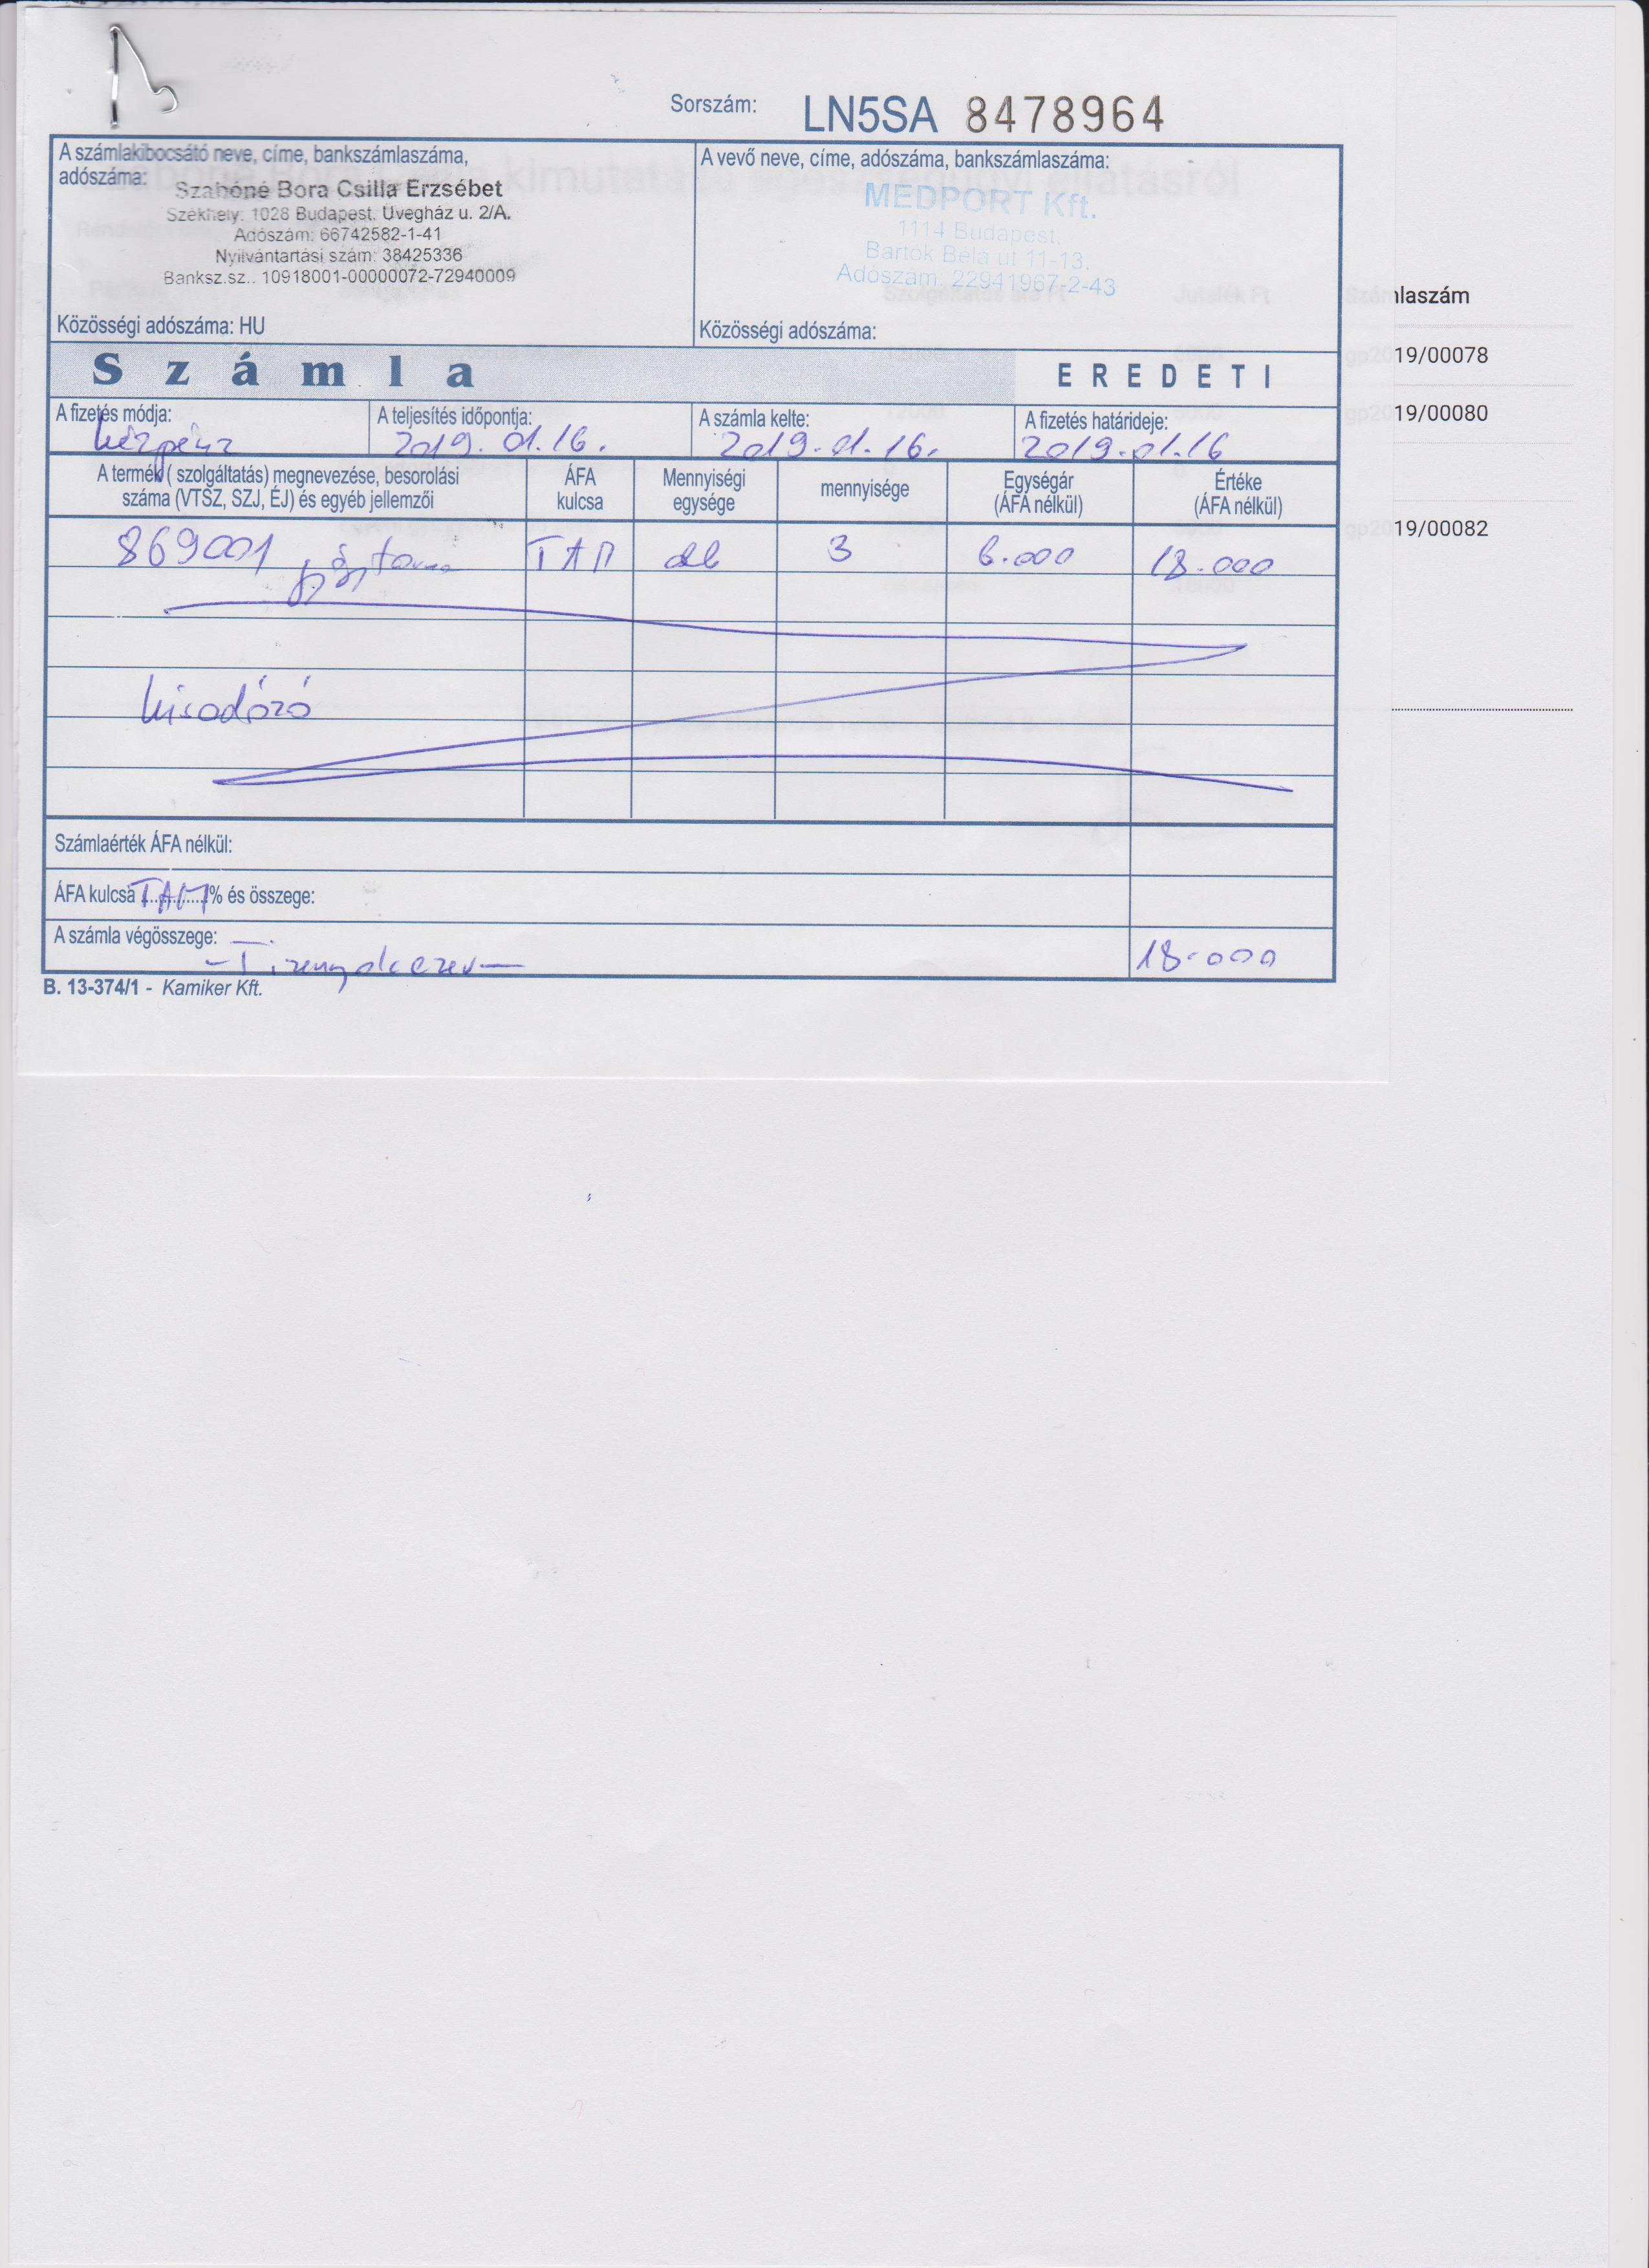 Sorszám: LN5SA 8478964
A számlakibocsátó neve, címe, bankszámlaszáma,
adószáma:
Szabóné Bora Csilla Erzsébet
Székhely: 1028 Budapest. Üvegház u. 2/A.
Adószám: 66742582-1-41
Nyilvántartási szám: 38425336
Banksz.sz.. 10918001-00000072-72940009
Közösségi adószáma: HU
A vevő neve, címe, adószáma, bankszámlaszáma:
MEDPORT Kft.
1114 Budapest,
Bartók Béla út 11-13.
Adószám: 22941967-2-43
Közösségi adószáma:
laszám
19/00078
19/00080
19/00082
Számla
EREDETI
A fizetés módja:
készpénz
A teljesítés időpontja:
2019. 01. 16.
A számla kelte:
2019. 01. 16.
A fizetés határideje:
2019. 01. 16
A termék ( szolgáltatás) megnevezése, besorolási
száma (VTSZ, SZJ, ÉJ) és egyéb jellemzői
ÁFA
kulcsa
Mennyiségi
egysége
mennyisége
Egységár
(ÁFA nélkül)
Értéke
(ÁFA nélkül)
869001 TAM db 3 6.000 18.000
kisadózó
Számlaérték ÁFA nélkül:
ÁFA kulcsa TAM % és összege:
A számla végösszege:
- Tizennyolcezer - 18.000
B. 13-374/1 - Kamiker Kft.